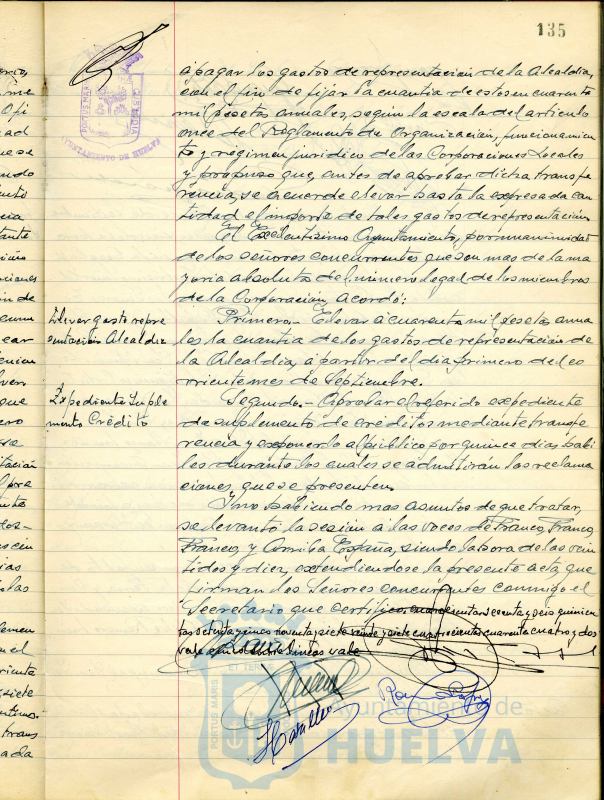 135
PORTUS MARIS
CUSTODIA
AYUNTAMIENTO DE HUELVA
a pagar los gastos de representación de la Alcaldia,
con el fin de fijar la cuantia de estos en cuarenta
mil pesetas anuales, segun la escala del articulo
once del Reglamento de Organización, funcionamien
to y régimen juridico de las Corporaciones Locales
y propuso que, antes de aprobar dicha transfe
rencia, se acuerde elevar hasta la expresada can
tidad el importe de tales gastos de representación.
El Excelentisimo Ayuntamiento, por unanimidad
de los señores concurrentes que son mas de la ma
yoria absoluta del número legal de los miembros
de la Corporación, acordó:
Elevar gasto repre
sentación Alcaldia
Primero.- Elevar a cuarenta mil pesetas anua
les la cuantia de los gastos de representación de
la Alcaldia, a partir del dia primero del co
rriente mes de Septiembre.
Expediente Suple
mento Crédito
Segundo.- Aprobar el referido expediente
de suplemento de créditos mediante transfe
rencia y exponerlo al público por quince dias hábi
les durante los cuales se admitirán las reclama
ciones que se presenten.
Y no habiendo mas asuntos de que tratar,
se levantó la sesión a las voces de Franco, Franco,
Franco, y Arriba España, siendo la hora de las vein
tidos y diez, extendiendose la presente acta, que
firman los Señores concurrentes conmigo el
Secretario que certifico.
vale
entre lineas vale
PORTUS MARIS
Ayuntamiento de
HUELVA